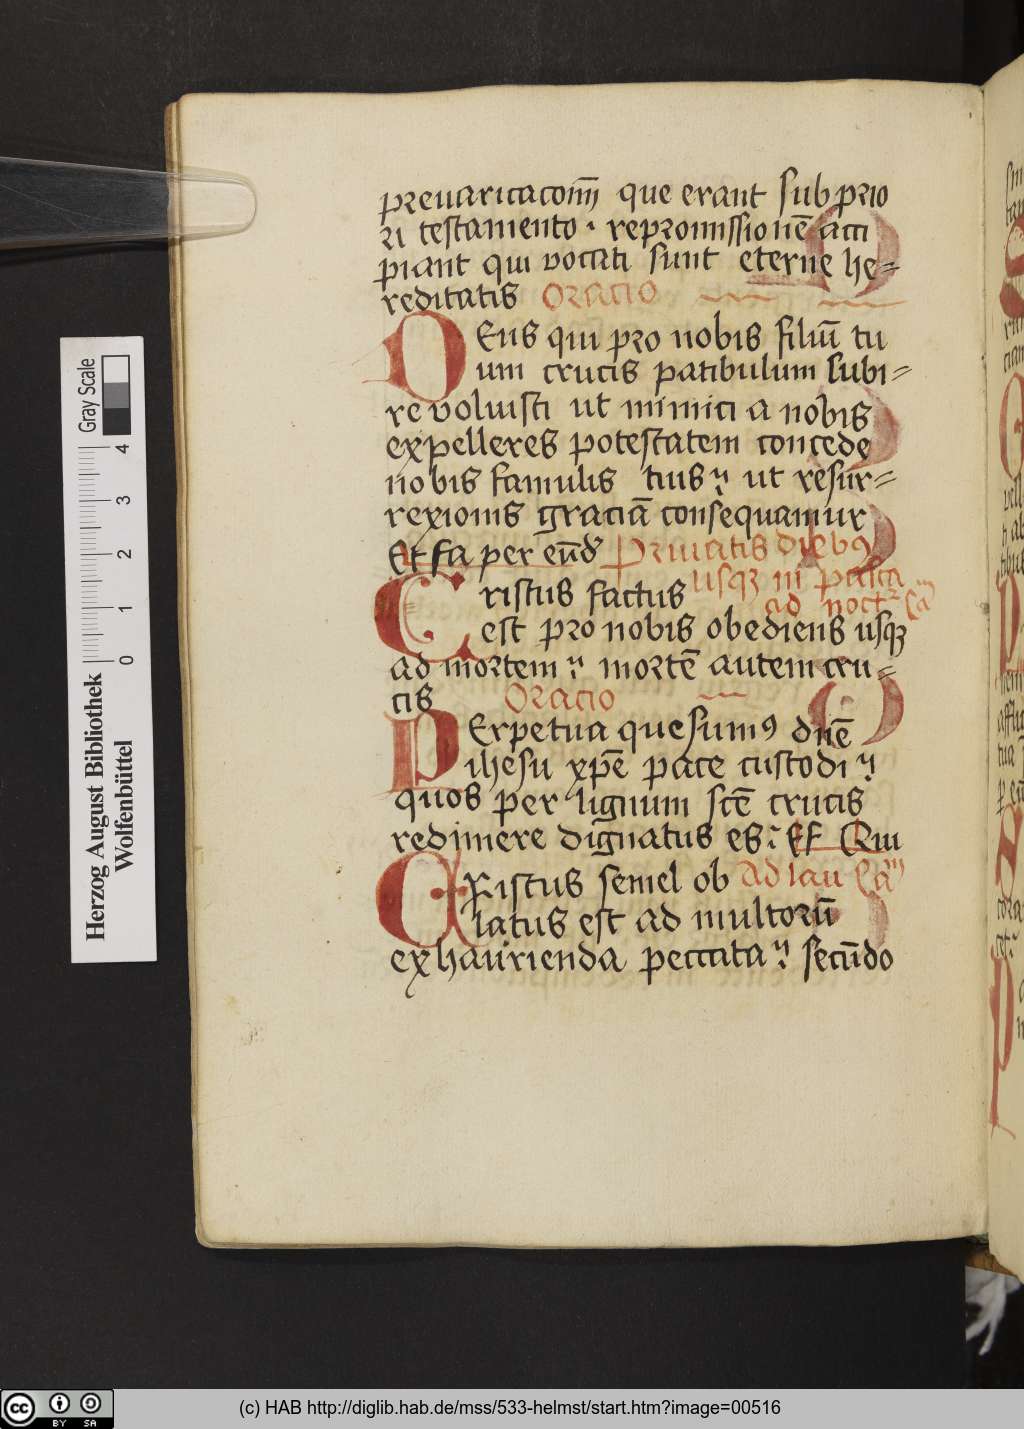 preuaricacom̄ que erant sub prio
ri testamento · repromissionē acci
piant qui vocati sunt eterne he=
reditatis Oracio
DEus qui pro nobis filiū tu
um crucis patibulum subi=
re voluisti ut inimici a nobis
expelleres potestatem concede
nobis famulis tuis ut resur=
rexionis graciā consequamur
Et fa per eūd Priuatis diebꝰ
usqꝫ in pasca
Cristus factus ad noct
est pro nobis obediens usqꝫ
ad mortem mortē autem cru=
cis Oracio
PErpetua quesumꝰ dnē
ihesu xpē pace custodi
quos per lignum scē crucis
redimere dignatus es Et Qui
CXRistus semel ob Ad lau Ca
latus est ad multorū
exhaurienda peccata secūdo
Gray Scale
4 3 2 1 0
Herzog August Bibliothek
Wolfenbüttel
cc BY SA
(c) HAB http://diglib.hab.de/mss/533-helmst/start.htm?image=00516